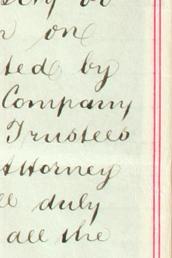 on one
ted by
Company
Trustees
Attorney
duly
all the